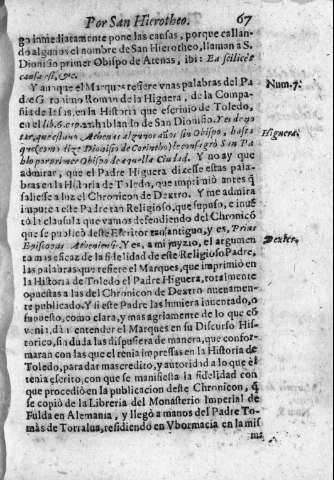 Por San Hierotheo. 67
go inmediatamente pone las causas, porque callan-
do algunos el nombre de San Hierotheo, llaman a S.
Dionisio primer Obispo de Atenas, ibi: Ea scilicet
causa est, &c.
Y aunque el Marques refiere unas palabras del Pa
dre Geronimo Roman de la Higuera, de la Compa-
ñia de Iesus, en la Historia que escriuio de Toledo,
en el lib. 6. cap. hablando de San Dionisio. Y en de
Athenas algunos años sin Obispo, hasta
que (como dize Dionisio de Corintho) le consagrò San Pa
blo por primer Obispo de aquella Ciudad. Y no ay que
admirar, que el Padre Higuera dixesse estas pala-
bras en la Historia de Toledo, que imprimiò antes q̃
saliesse a luz el Chronicon de Dextro. Y me admira
impute a este Padre tan Religioso, que supuso, e inuē
tò la clausula que vamos defendiendo del Chronicō
que se publicò deste Escritor tan antiguo, y es, Prius
Episcopus Atheniensis. Y es, a mi juyzio, el argumen
to mas eficaz de la fidelidad de este Religioso Padre,
las palabras que refiere el Marques, que imprimiò en
la Historia de Toledo el Padre Higuera, totalmente
opuestas a las del Chronicon de Dextro nueuamen-
te publicado. Y si este Padre las huuiera inuentado, o
supuesto, como clara, y mas agriamente de lo que cō
venia, dà a entender el Marques en su Discurso His-
torico, sin duda las dispusiera de manera, que confor-
maran con las que el tenia impressas en la Historia de
Toledo, para dar mas credito, y autoridad a lo que el
tenia escrito, con que se manifiesta la fidelidad con
que procediò en la publicacion deste Chronicon, q̃
se copiò de la Libreria del Monasterio Imperial de
Fulda en Alemania, y llegò a manos del Padre To-
màs de Torralua, residiendo en Vbormacia en la mis
ma
Num. 7.
Higuera.
Dexter.